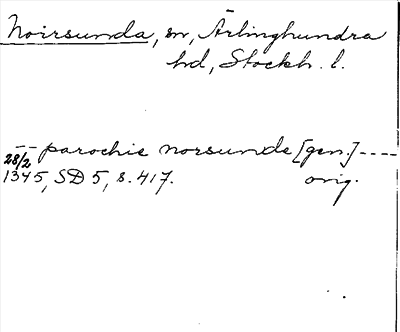 Noirsunda, sn, Ärlinghundra
hd, Stockh. l.
-- parochie norsunde [gen.] ----
28/2
1345, SD 5, s. 417. orig.